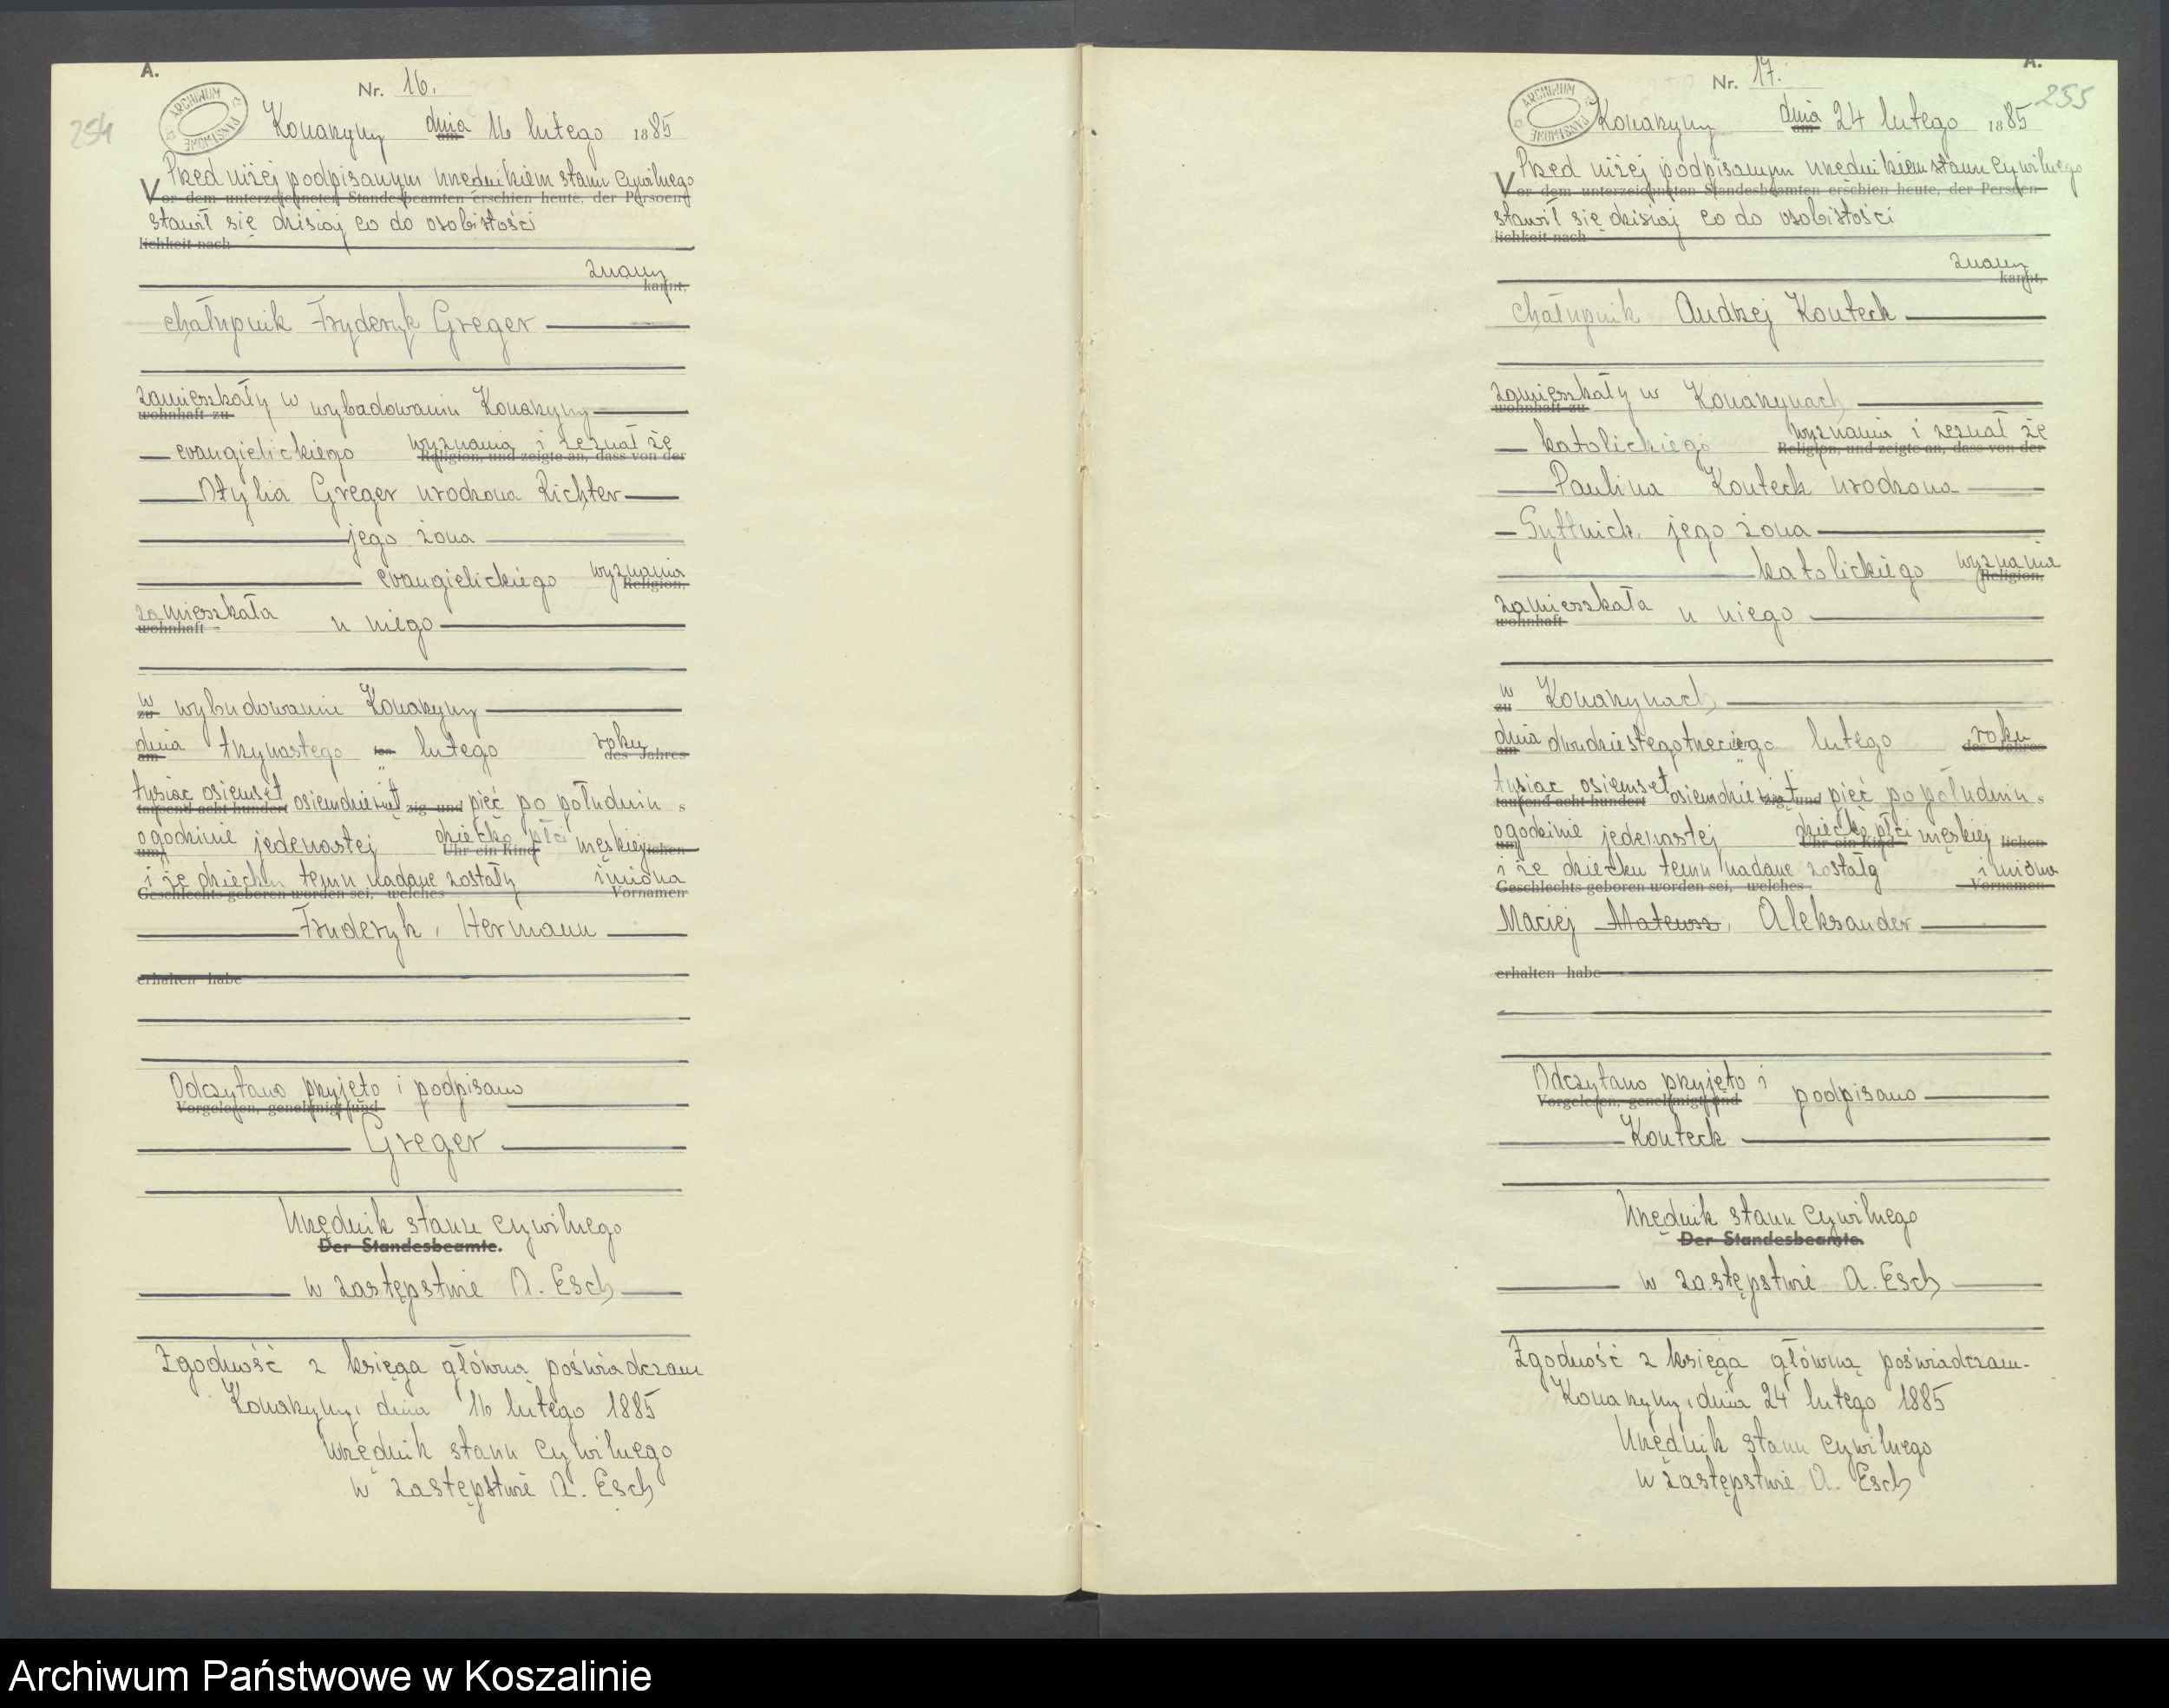 A.
Nr. 16.
254
ARCHIWUM PAŃSTWOWE
Konarzyny dnia am 16 lutego 1885
Przed niżej podpisanym urzędnikiem stanu cywilnego
Vor dem unterzeichneten Standesbeamten erschien heute, der Persoen-
stawił się dzisiaj co do osobistości
lichkeit nach
znany
kannt,
chałupnik Fryderyk Greger
zamieszkały w wybudowaniu Konarzyny
wohnhaft zu
evangielickiego wyznania i zeznał że
Religion, und zeigte an, dass von der
Otylia Greger urodzona Richter
jego żona
evangielickiego wyznania
Religion,
zamieszkała u niego
wohnhaft
w wybudowaniu Konarzyny
zu
dnia trzynastego lutego roku
am des Jahres
tysiąc osiemset osiemdziesiąt pięć po południu
tausend acht hundert zig und
o godzinie jedenastej dziecko płci męskiej
um Uhr ein Kind lichen
i że dziecku temu nadane zostały imiona
Geschlechts geboren worden sei, welches Vornamen
Fryderyk, Hermann
erhalten habe
Odczytano przyjęto i podpisano
Vorgelesen, genehmigt und
Greger
Urzędnik stanu cywilnego
Der Standesbeamte.
w zastępstwie A. Esch
Zgodność z księgą główną poświadczam
Konarzyny, dnia 16 lutego 1885
Urzędnik stanu cywilnego
w zastępstwie A. Esch
A.
Nr. 17.
255
ARCHIWUM PAŃSTWOWE
Konarzyny dnia am 24 lutego 1885
Przed niżej podpisanym urzędnikiem stanu cywilnego
Vor dem unterzeichneten Standesbeamten erschien heute, der Persoen-
stawił się dzisiaj co do osobistości
lichkeit nach
znany
kannt,
chałupnik Andrzej Konteck
zamieszkały w Konarzynach
wohnhaft zu
katolickiego wyznania i zeznał że
Religion, und zeigte an, dass von der
Paulina Konteck urodzona
jego żona
katolickiego wyznania
Religion,
zamieszkała u niego
wohnhaft
w Konarzynach
zu
dnia dwudziestegotrzeciego lutego roku
am des Jahres
tysiąc osiemset osiemdziesiąt pięć po południu
tausend acht hundert zig und
o godzinie jedenastej dziecko płci męskiej
um Uhr ein Kind lichen
i że dziecku temu nadane zostały imiona
Geschlechts geboren worden sei, welches Vornamen
Maciej Mateusz, Aleksander
erhalten habe
Odczytano przyjęto i podpisano
Vorgelesen, genehmigt und
Konteck
Urzędnik stanu cywilnego
Der Standesbeamte.
w zastępstwie A. Esch
Zgodność z księgą główną poświadczam.
Konarzyny, dnia 24 lutego 1885
Urzędnik stanu cywilnego
w zastępstwie A. Esch
Archiwum Państwowe w Koszalinie